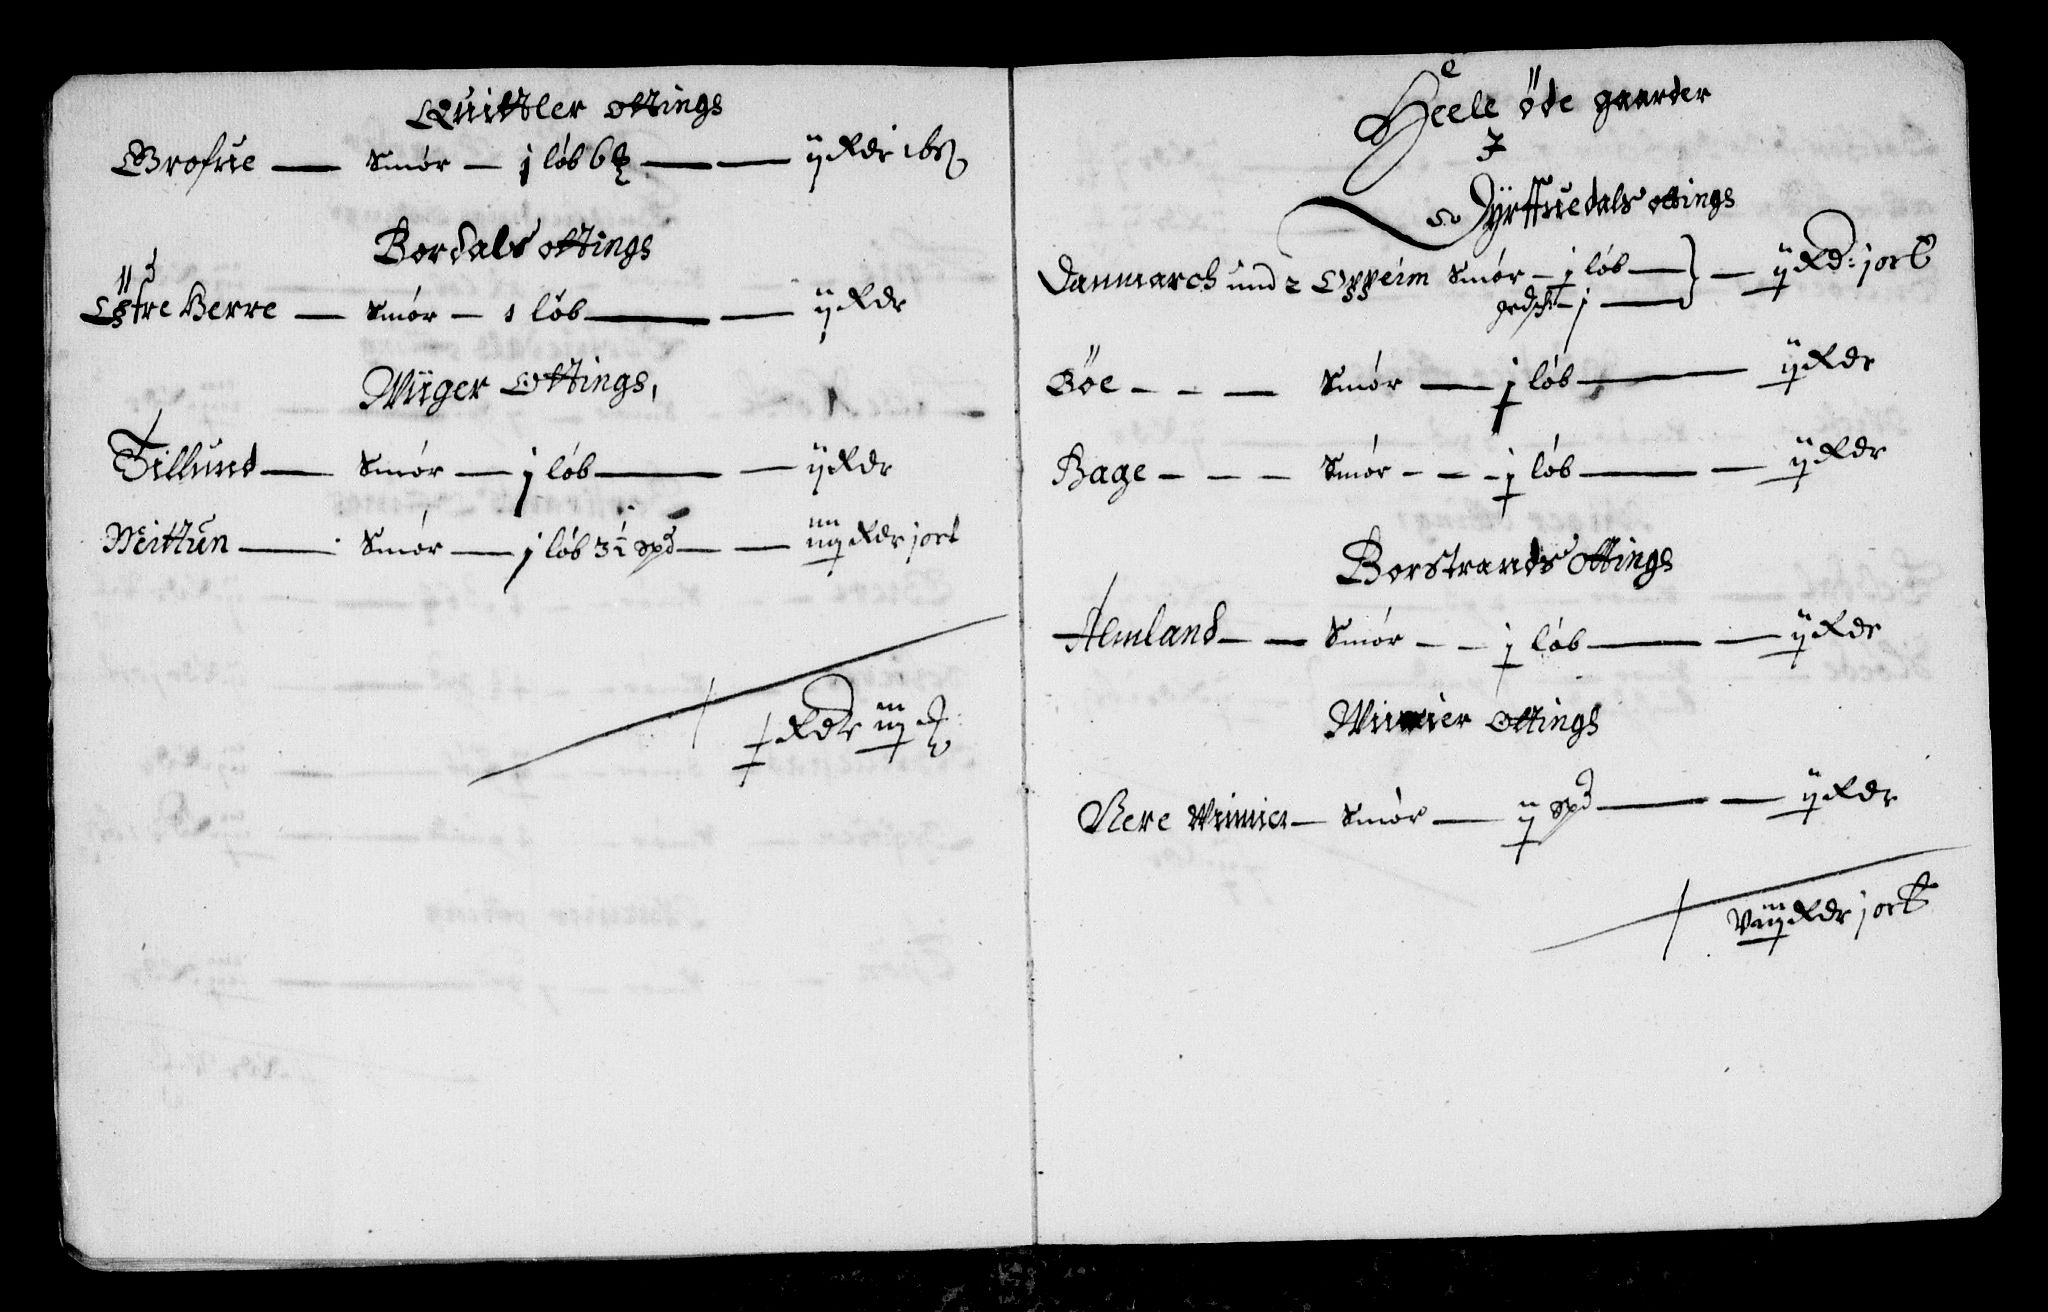 Quittler ottings
Grofue — Smør — j løb 6 — ij Rdr
Bordals ottings
Øystre Herre — Smør — 1 løb — ij Rdr
Wiiger Ottings,
Tillund — Smør — j løb — ij Rdr
Meittun — Smør — j løb 3½ spd — iiij Rdr j ort
Rdr
Heele øde gaarder
J
Dyrffuedals ottings
Danmarch und 2 Oppeim Smør — j løb — ij Rd: j ort
j
Bøe — Smør — j løb — ij Rdr
Bage — Smør — j løb — ij Rdr
Borstrands Ottings
Almland — Smør — j løb — ij Rdr
Ottings
Nere Winnier — Smør — ij spd — ij Rdr
Viij Rdr j ort